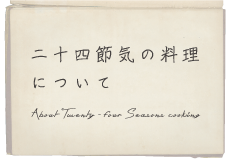 二十四節気の料理
について
About Twenty-four Seasons cooking